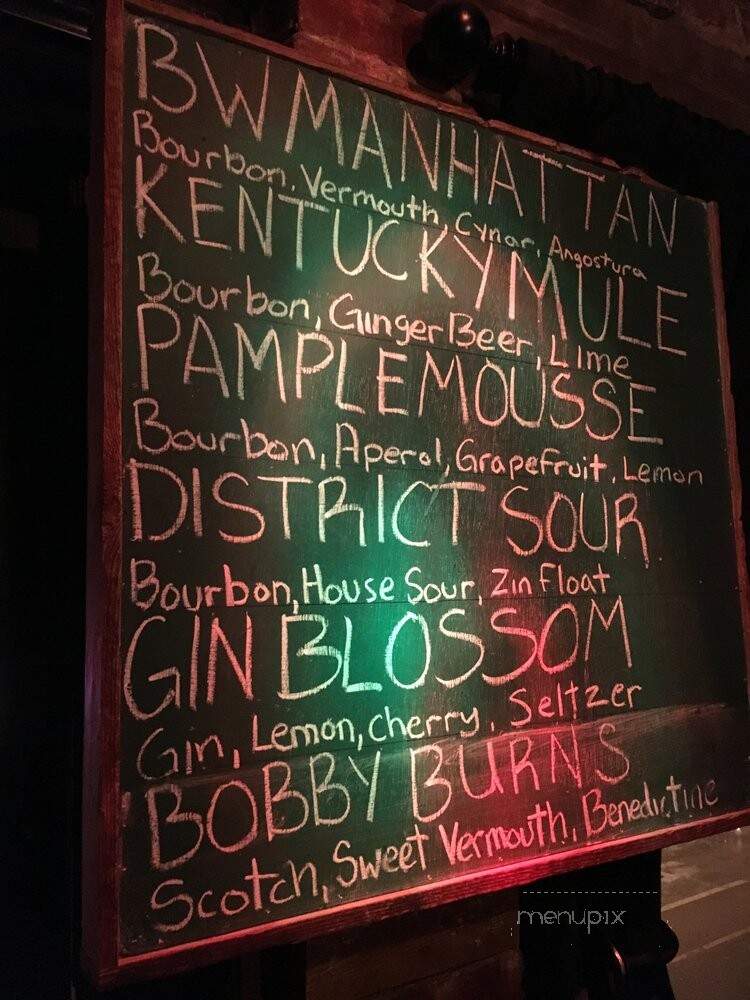 BW MANHATTAN
Bourbon, Vermouth, Cynar, Angostura
KENTUCKY MULE
Bourbon, Ginger Beer, Lime
PAMPLEMOUSSE
Bourbon, Aperol, Grapefruit, Lemon
DISTRICT SOUR
Bourbon, House Sour, Zin Float
GIN BLOSSOM
Gin, Lemon, cherry, Seltzer
BOBBY BURNS
Scotch, Sweet Vermouth, Benedictine
menupix